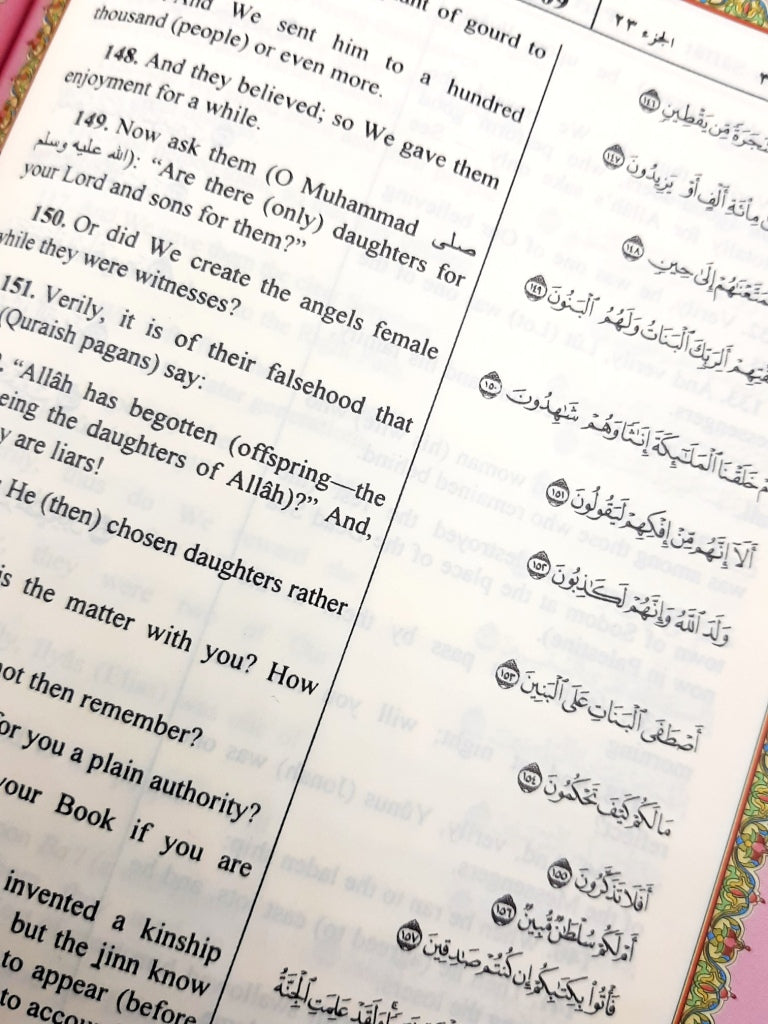 of gourd to
And We sent him to a hundred
thousand (people) or even more.
148. And they believed; so We gave them
enjoyment for a while.
149. Now ask them (O Muhammad صلى
الله عليه وسلم): “Are there (only) daughters for
your Lord and sons for them?”
150. Or did We create the angels female
while they were witnesses?
151. Verily, it is of their falsehood that
(Quraish pagans) say:
“Allâh has begotten (offspring—the
being the daughters of Allâh)?” And,
are liars!
He (then) chosen daughters rather
is the matter with you? How
not then remember?
for you a plain authority?
your Book if you are
invented a kinship
but the jinn know
to appear (before
to
الجزء ٢٣
مِّن يَقْطِينٍ ١٤٦
مِاْئَةِ أَلْفٍ أَوْ يَزِيدُونَ ١٤٧
إِلَىٰ حِينٍ ١٤٨
أَلِرَبِّكَ ٱلْبَنَاتُ وَلَهُمُ ٱلْبَنُونَ ١٤٩
خَلَقْنَا ٱلْمَلَٰٓئِكَةَ إِنَٰثًا وَهُمْ شَٰهِدُونَ ١٥٠
أَلَآ إِنَّهُم مِّنْ إِفْكِهِمْ لَيَقُولُونَ ١٥١
وَلَدَ ٱللَّهُ وَإِنَّهُمْ لَكَٰذِبُونَ ١٥٢
أَصْطَفَى ٱلْبَنَاتِ عَلَى ٱلْبَنِينَ ١٥٣
مَا لَكُمْ كَيْفَ تَحْكُمُونَ ١٥٤
أَفَلَا تَذَكَّرُونَ ١٥٥
أَمْ لَكُمْ سُلْطَٰنٌ مُّبِينٌ ١٥٦
فَأْتُوا۟ بِكِتَٰبِكُمْ إِن كُنتُمْ صَٰدِقِينَ ١٥٧
وَلَقَدْ عَلِمَتِ ٱلْجِنَّةُ